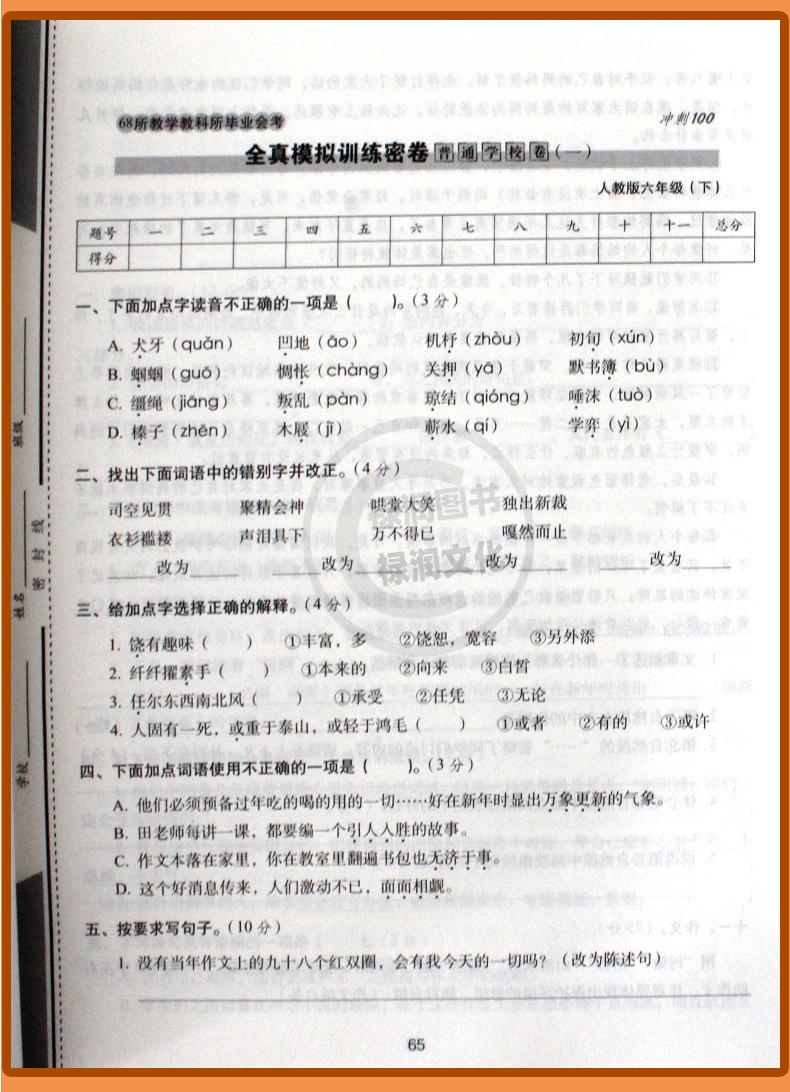 68所教学教科所毕业会考
冲刺100
全真模拟训练密卷 普通学校卷(一)
人教版六年级(下)
题号 一 二 三 四 五 六 七 八 九 十 十一 总分
得分
一、下面加点字读音不正确的一项是( )。(3分)
A. 犬牙(quǎn) 凹地(āo) 机杼(zhòu) 初旬(xún)
B. 蝈蝈(guō) 惆怅(chàng) 关押(yā) 默书簿(bù)
C. 缰绳(jiāng) 叛乱(pàn) 琼结(qióng) 唾沫(tuò)
D. 榛子(zhēn) 木屐(jī) 蕲水(qí) 学弈(yì)
二、找出下面词语中的错别字并改正。(4分)
司空见贯 聚精会神 哄堂大笑 独出新裁
衣衫褴褛 声泪具下 万不得已 嘎然而止
改为 改为 改为 改为
三、给加点字选择正确的解释。(4分)
1. 饶有趣味( ) ①丰富,多 ②饶恕,宽容 ③另外添
2. 纤纤擢素手( ) ①本来的 ②向来 ③白皙
3. 任尔东西南北风( ) ①承受 ②任凭 ③无论
4. 人固有一死,或重于泰山,或轻于鸿毛( ) ①或者 ②有的 ③或许
四、下面加点词语使用不正确的一项是( )。(3分)
A. 他们必须预备过年吃的喝的用的一切……好在新年时显出万象更新的气象。
B. 田老师每讲一课,都要编一个引人入胜的故事。
C. 作文本落在家里,你在教室里翻遍书包也无济于事。
D. 这个好消息传来,人们激动不已,面面相觑。
五、按要求写句子。(10分)
1. 没有当年作文上的九十八个红双圈,会有我今天的一切吗?(改为陈述句)
65
班级
姓名
学校
密封线
禄润图书
禄润文化